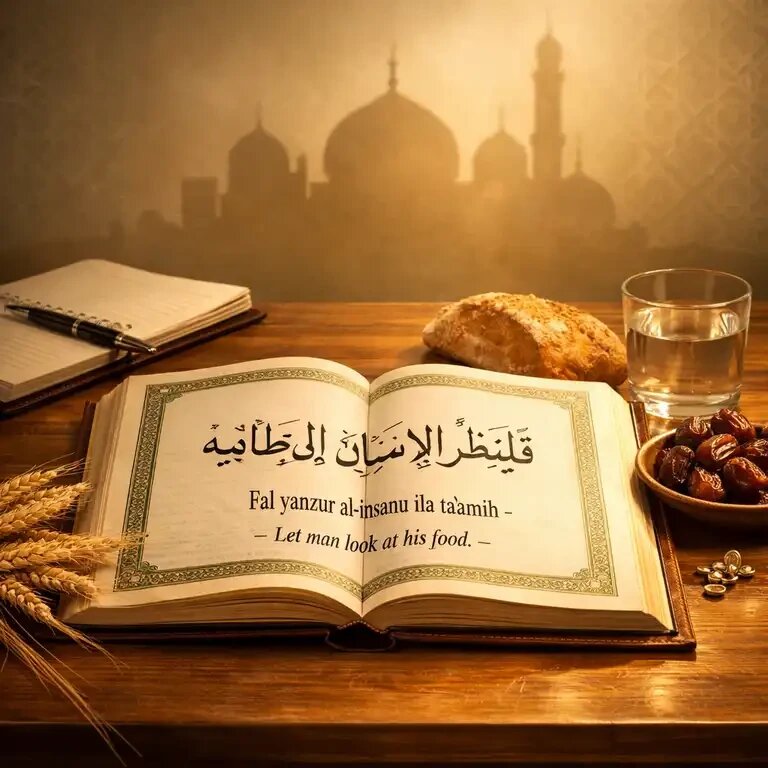 قَلِيَنظِرُ الإِنسَانَ إِلى طَأمِيِهِ
Fal yanzur al-insanu ila ta'amih –
– Let man look at his food. –